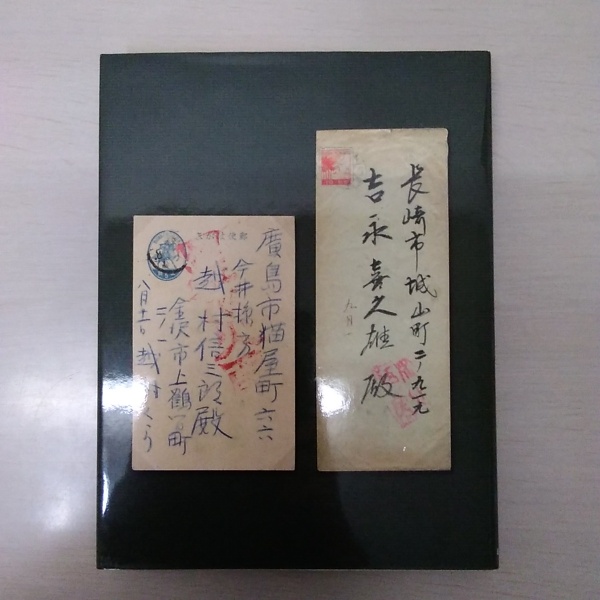 長崎市城山町二ノ九一九
吉永喜久雄殿
九月一
廣島市猫屋町六六
今井様方
越村信三郎殿
金沢市上鶴間町
八月十一日 越村